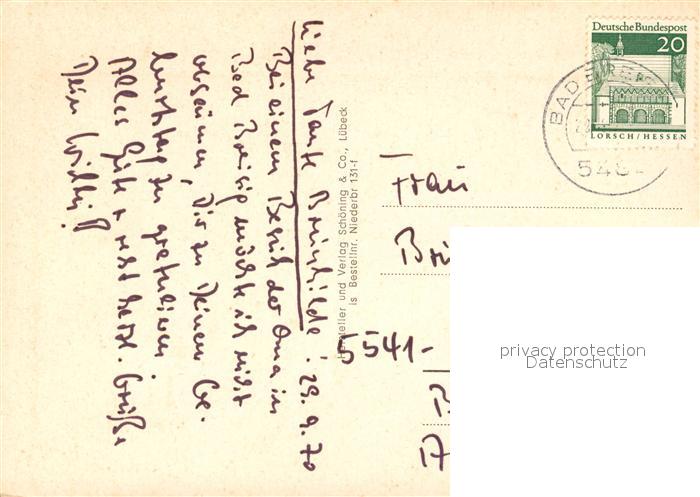 Liebe Tante Brunhilde! 29.9.70
Bei einem Besuch der Oma in
Bad Breisig möchte ich nicht
versäumen, Dir zu Deinem Ge-
burtstag zu gratulieren.
Alles Gute & recht herzl. Grüße
Dein
Hersteller und Verlag Schöning & Co., Lübeck
Bestellnr. Niederbr 131-f
Deutsche Bundespost
20
LORSCH/HESSEN
BAD
Frau
5541-
privacy protection
Datenschutz